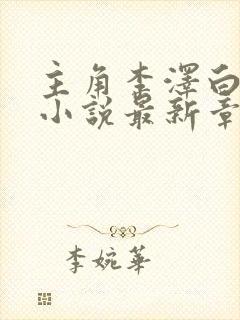 主角李澤白
小説最新章
李婉華